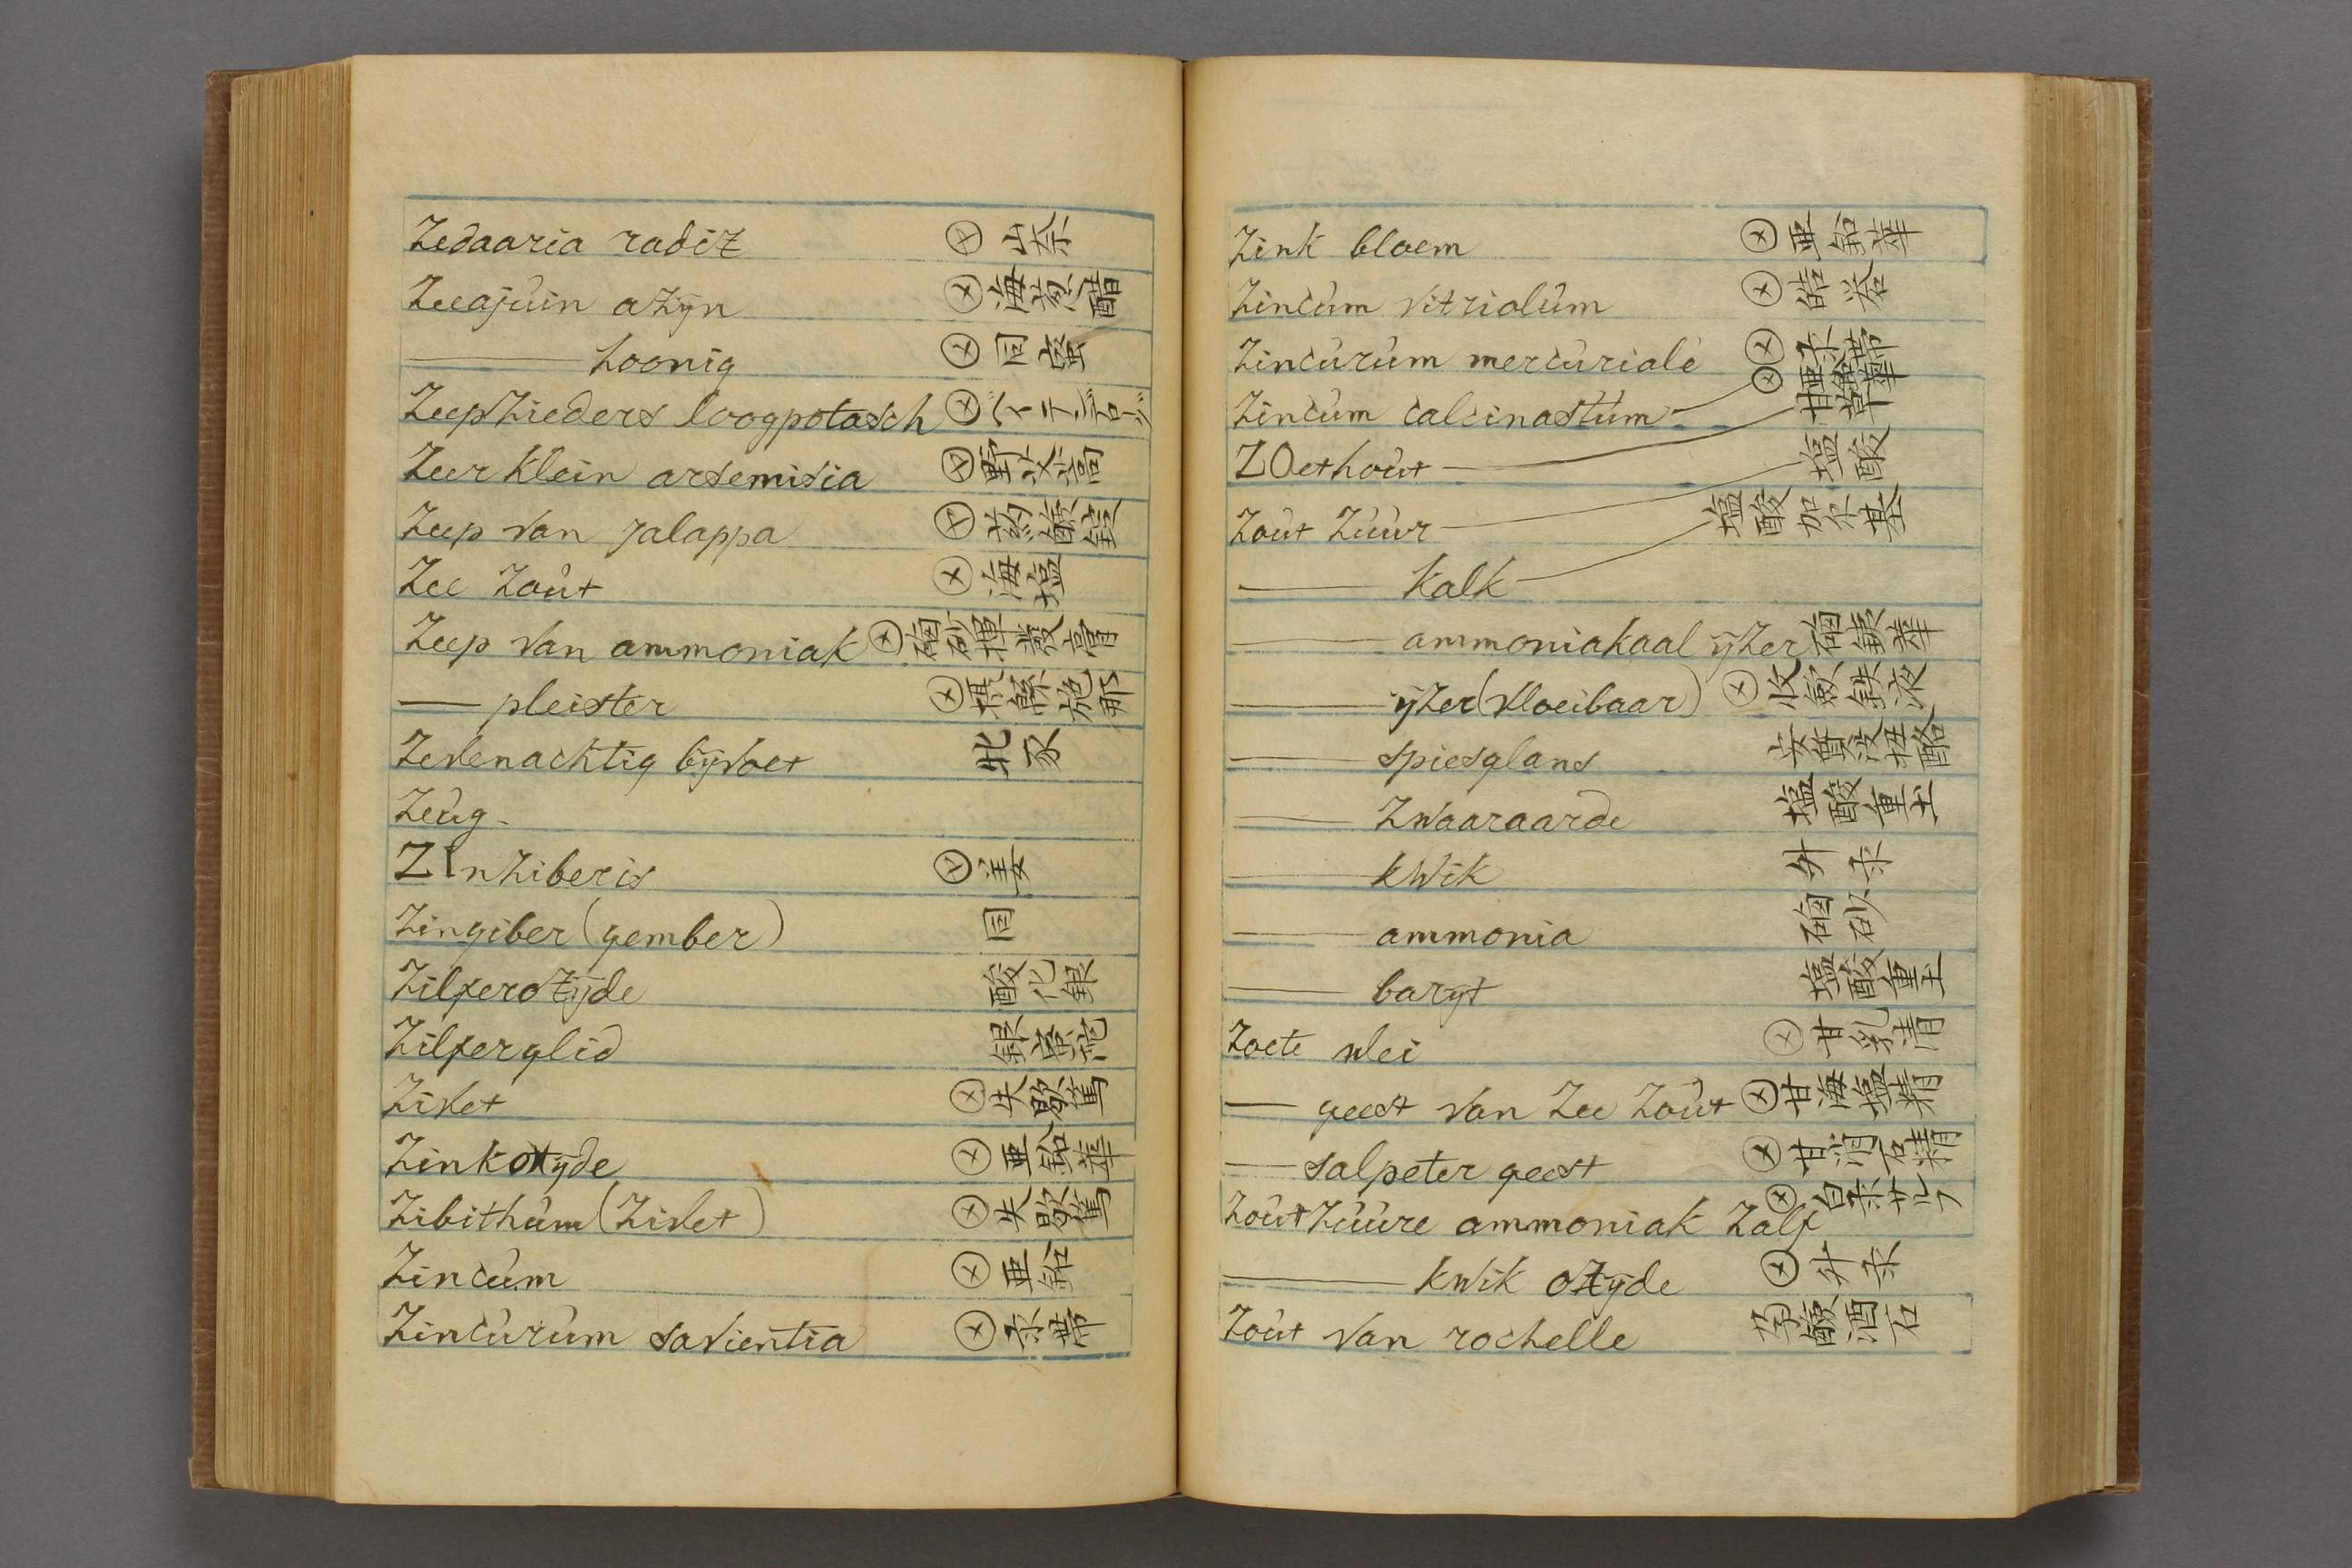 Zedaaria radiz ⊗ 山柰
Zeeajuin azÿn ⊗ 海葱醋
——— hoonig ⊗ 同蜜
Zeepzieders loogpotasch ⊗
Zeer klein artemisia ⊗ 野艾蒿
Zeep van jalappa ⊗
Zee zout ⊗ 海塩
Zeep van ammoniak ⊗ 硇砂揮發膏
— pleister ⊗
Zevenachtig bÿvoet
Zeug
ZInziberis ⊗ 姜
Zingiber (gember) 同
Zilferozÿde 酸化銀
Zilferglid 銀密陀
Zivet ⊗
Zinkozÿde ⊗ 亜鉛華
Zibithum (Zivet) ⊗
Zincum ⊗ 亜鉛
Zincurum savientia ⊗
Zink bloem ⊗ 亜鉛華
Zincum vitriolum ⊗ 皓礬
Zincurum mercuriale ⊗
Zincum calcinastum ⊗ 亜鉛華
ZOethout 甘草
Zout Zuur 塩酸
—— kalk 塩酸加尓基
—— ammoniakaal ÿzer 硇銕華
—— ÿzer (vloeibaar) ⊗ 收斂鉄液
—— spiesglans
—— Zwaaraarde 塩酸重土
—— kwik 升汞
—— ammonia 硇砂
—— barÿt 塩酸重土
Zoete wei ⊗ 甘乳清
— geest van Zee Zout ⊗ 甘海塩精
— salpeter geest ⊗ 甘消石精
Zout Zuure ammoniak Zalf ⊗ 白汞サルフ
——— kwik ozÿde ⊗ 升汞
Zout van rochelle 酒石